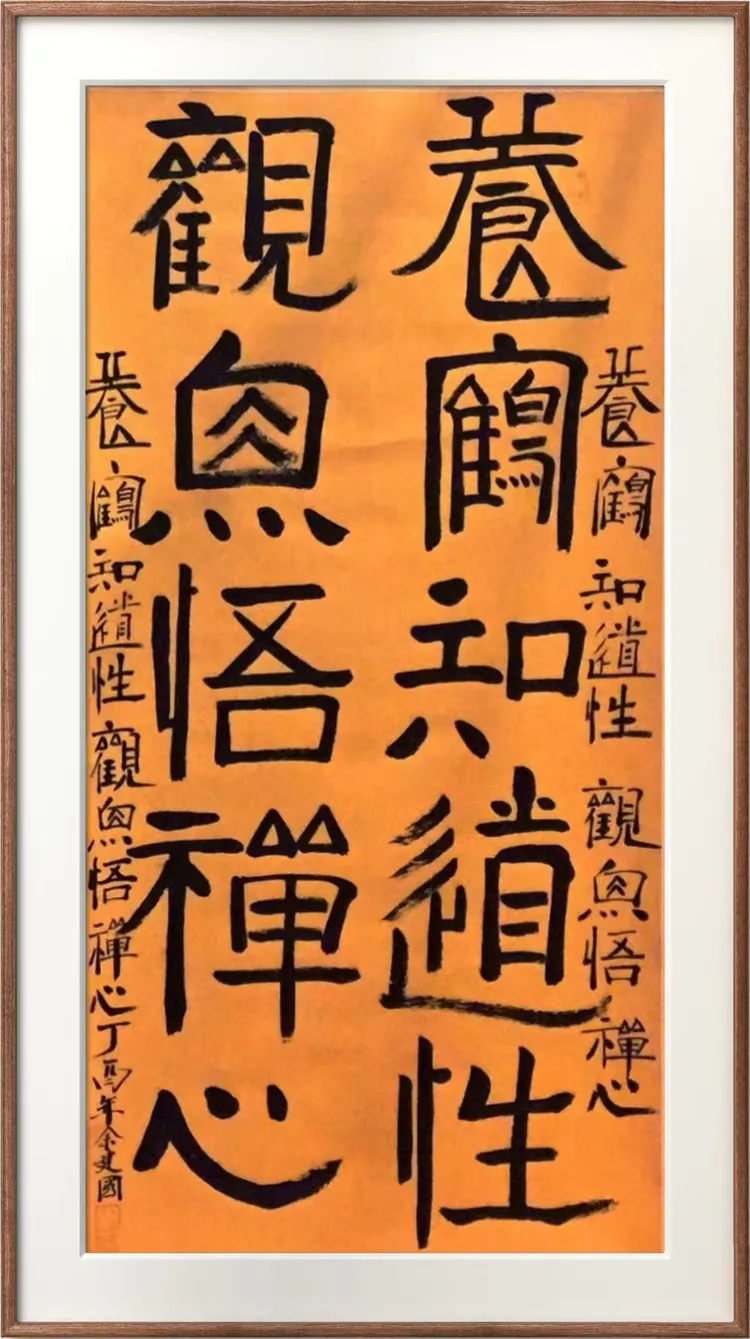 養鶴知道性 觀魚悟禪心
養鶴知道性
觀魚悟禪心
養鶴知道性觀魚悟禪心丁年余建國